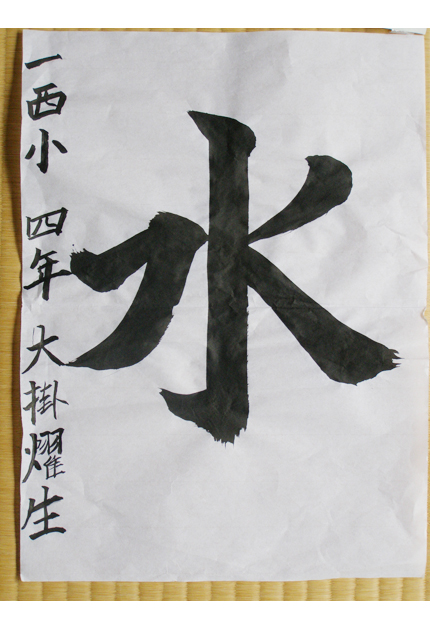 水
一西小 四年 大掛燿生